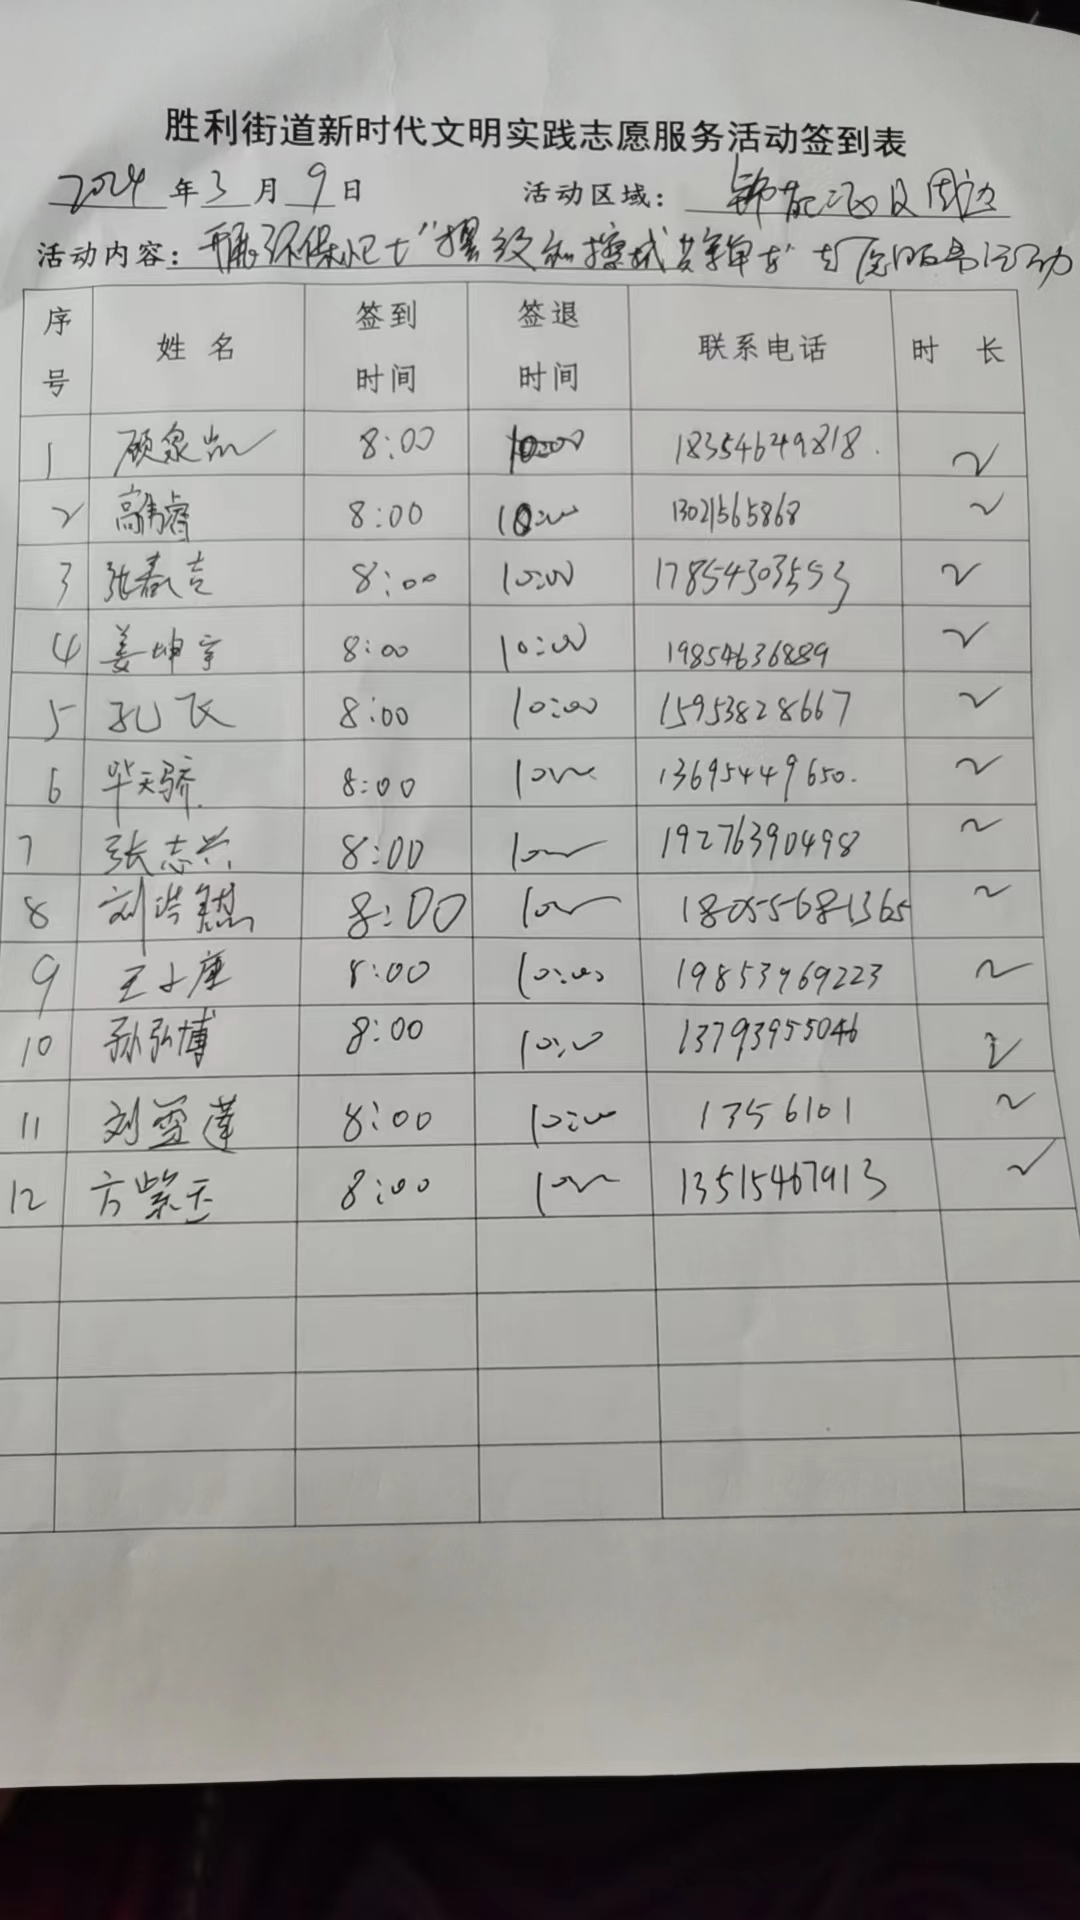 胜利街道新时代文明实践志愿服务活动签到表
2024年3月9日 活动区域：及周边
活动内容：开展环保卫士"摆放和擦拭共享单车"志愿服务活动
序号 姓名 签到时间 签退时间 联系电话 时长
1 顾泉 8:00 10:00 18354649818. 2
2 高睿 8:00 10:00 13021565868 2
3 张春吉 8:00 10:00 17854303553 2
4 姜坤宇 8:00 10:00 19854636889 2
5 孔飞 8:00 10:00 15953828667 2
6 毕天骄 8:00 10:00 13695449650. 2
7 张志兴 8:00 10:00 19276390498 2
8 刘洪 8:00 10:00 18055681365 2
9 王 8:00 10:00 19853969223 2
10 孙弘博 8:00 10:00 13793955046 2
11 刘雪莲 8:00 10:00 1356101 2
12 方紫玉 8:00 10:00 13515467913 2